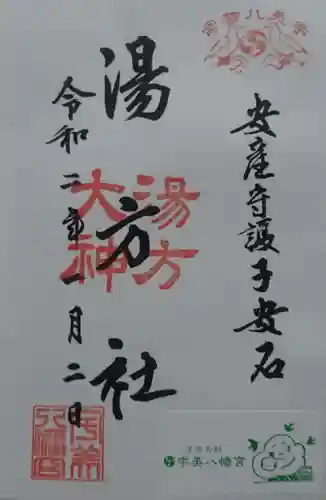 宇美八幡宮
安産守護子安石
湯方社
湯方
大神
令和二年一月二日
宇美八幡宮
宇美八幡宮